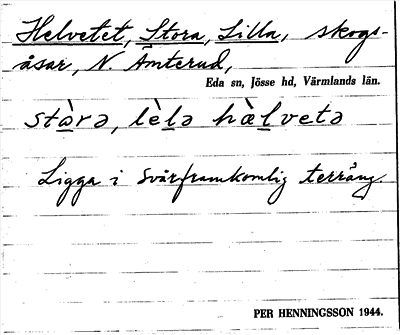 Helvetet, Stora, Lilla, skogs-
åsar, N. Ämterud,
Eda sn, Jösse hd, Värmlands län.
stòrə, lèlə hàlvetə
Ligga i svårframkomlig terräng.
PER HENNINGSSON 1944.